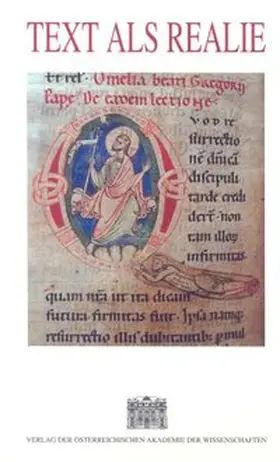 TEXT ALS REALIE
et rel. Omelia beati Gregorij
Pape. De eadem lectione
vod re
surrectio
ne dnica
discipuli
tarde credi
dert. non
tam illoy
infirmitas
quam nra ut ita dicam
futura firmitas fuit. Ipsa namq;
resurrectio illis dubitantibus
VERLAG DER ÖSTERREICHISCHEN AKADEMIE DER WISSENSCHAFTEN